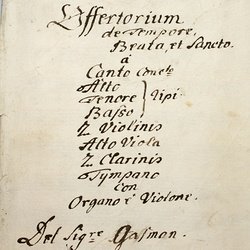 Offertorium
de Tempore,
Beata, et Sancto.
à
Canto Conc:to
Alto
Tenore } Ripi
Basso
2 Violinis
Alto Viola
2 Clarinis
Tympano
con
Organo è Violone.
Del Sig:re Gasman.